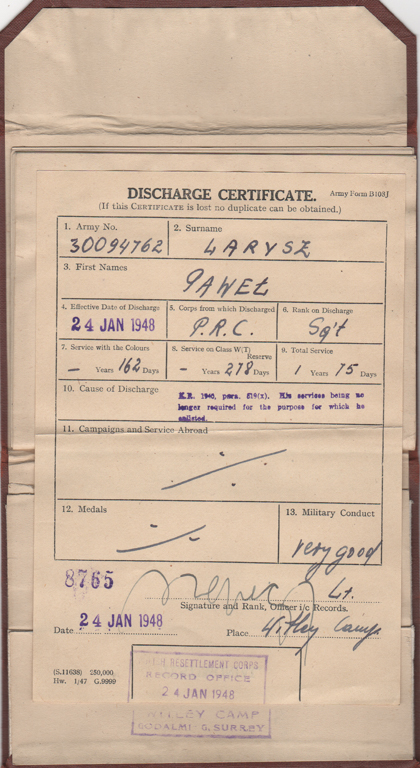 DISCHARGE CERTIFICATE. Army Form B108J
(If this CERTIFICATE is lost no duplicate can be obtained.)
1. Army No. 2. Surname
30094762 LARYSZ
3. First Names
PAWEŁ
4. Effective Date of Discharge 5. Corps from which Discharged 6. Rank on Discharge
24 JAN 1948 P.R.C. Sg't
7. Service with the Colours 8. Service on Class W(T) Reserve 9. Total Service
– Years 162 Days – Years 278 Days 1 Years 75 Days
10. Cause of Discharge K.R. 1940, para. 519(x). His services being no
longer required for the purpose for which he
enlisted.
11. Campaigns and Service Abroad
12. Medals 13. Military Conduct
very good
8765
Lt.
Signature and Rank, Officer i/c Records.
Date 24 JAN 1948 Place Witley Camp
(S.11638) 250,000
Hw. 1/47 G.9999
RESETTLEMENT CORPS
RECORD OFFICE
24 JAN 1948
WITLEY CAMP
GODALMI G. SURREY